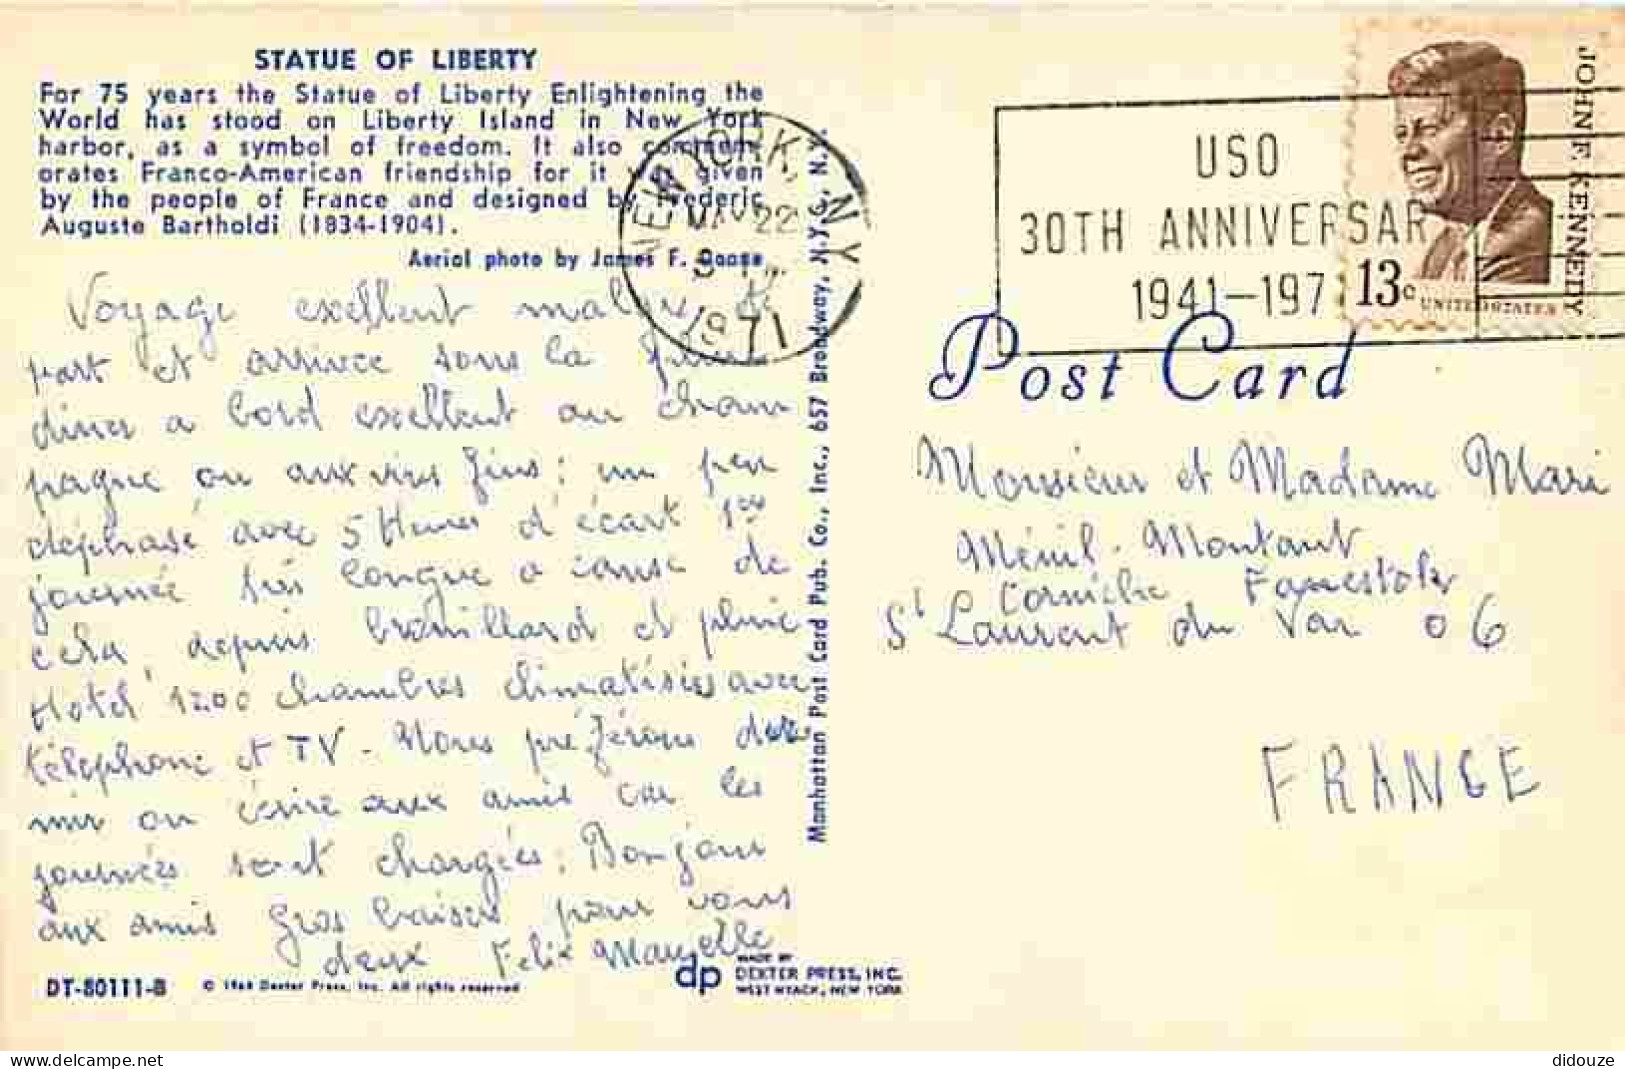 STATUE OF LIBERTY
For 75 years the Statue of Liberty Enlightening the
World has stood on Liberty Island in New York
harbor, as a symbol of freedom. It also commem-
orates Franco-American friendship for it was given
by the people of France and designed by Frederic
Auguste Bartholdi (1834-1904).
Aerial photo by James F. Doane
Voyage excellent malgré
part et arrivée sous la pluie
diner a bord excellent au cham
pagne ou aux vins fins: un peu
déphasé avec 5 Heures d'écart 1ere
journée très longue a cause de
cela, depuis brouillard et pluie
Hotel 1200 chambres climatisées avec
téléphone et TV - Nous préférons dor
mir ou écrire aux amis car les
journées sont chargées. Bonjour
aux amis Gros baisers pour vous
deux Felix Maryelle
DT-80111-B
© 1964 Dexter Press, Inc. All rights reserved
dp
MADE BY
DEXTER PRESS, INC.
WEST NYACK, NEW YORK
Manhattan Post Card Pub. Co., Inc., 657 Broadway, N.Y.C., N.Y.
NEW YORK, N.Y.
MAY 22
1971
USO
30TH ANNIVERSAR
1941-197
JOHN F. KENNEDY
13c
UNITED STATES
Post Card
Monsieur et Madame Mari
Ménil-Montant
Corniche
St Laurent du Var 06
FRANCE
didouze